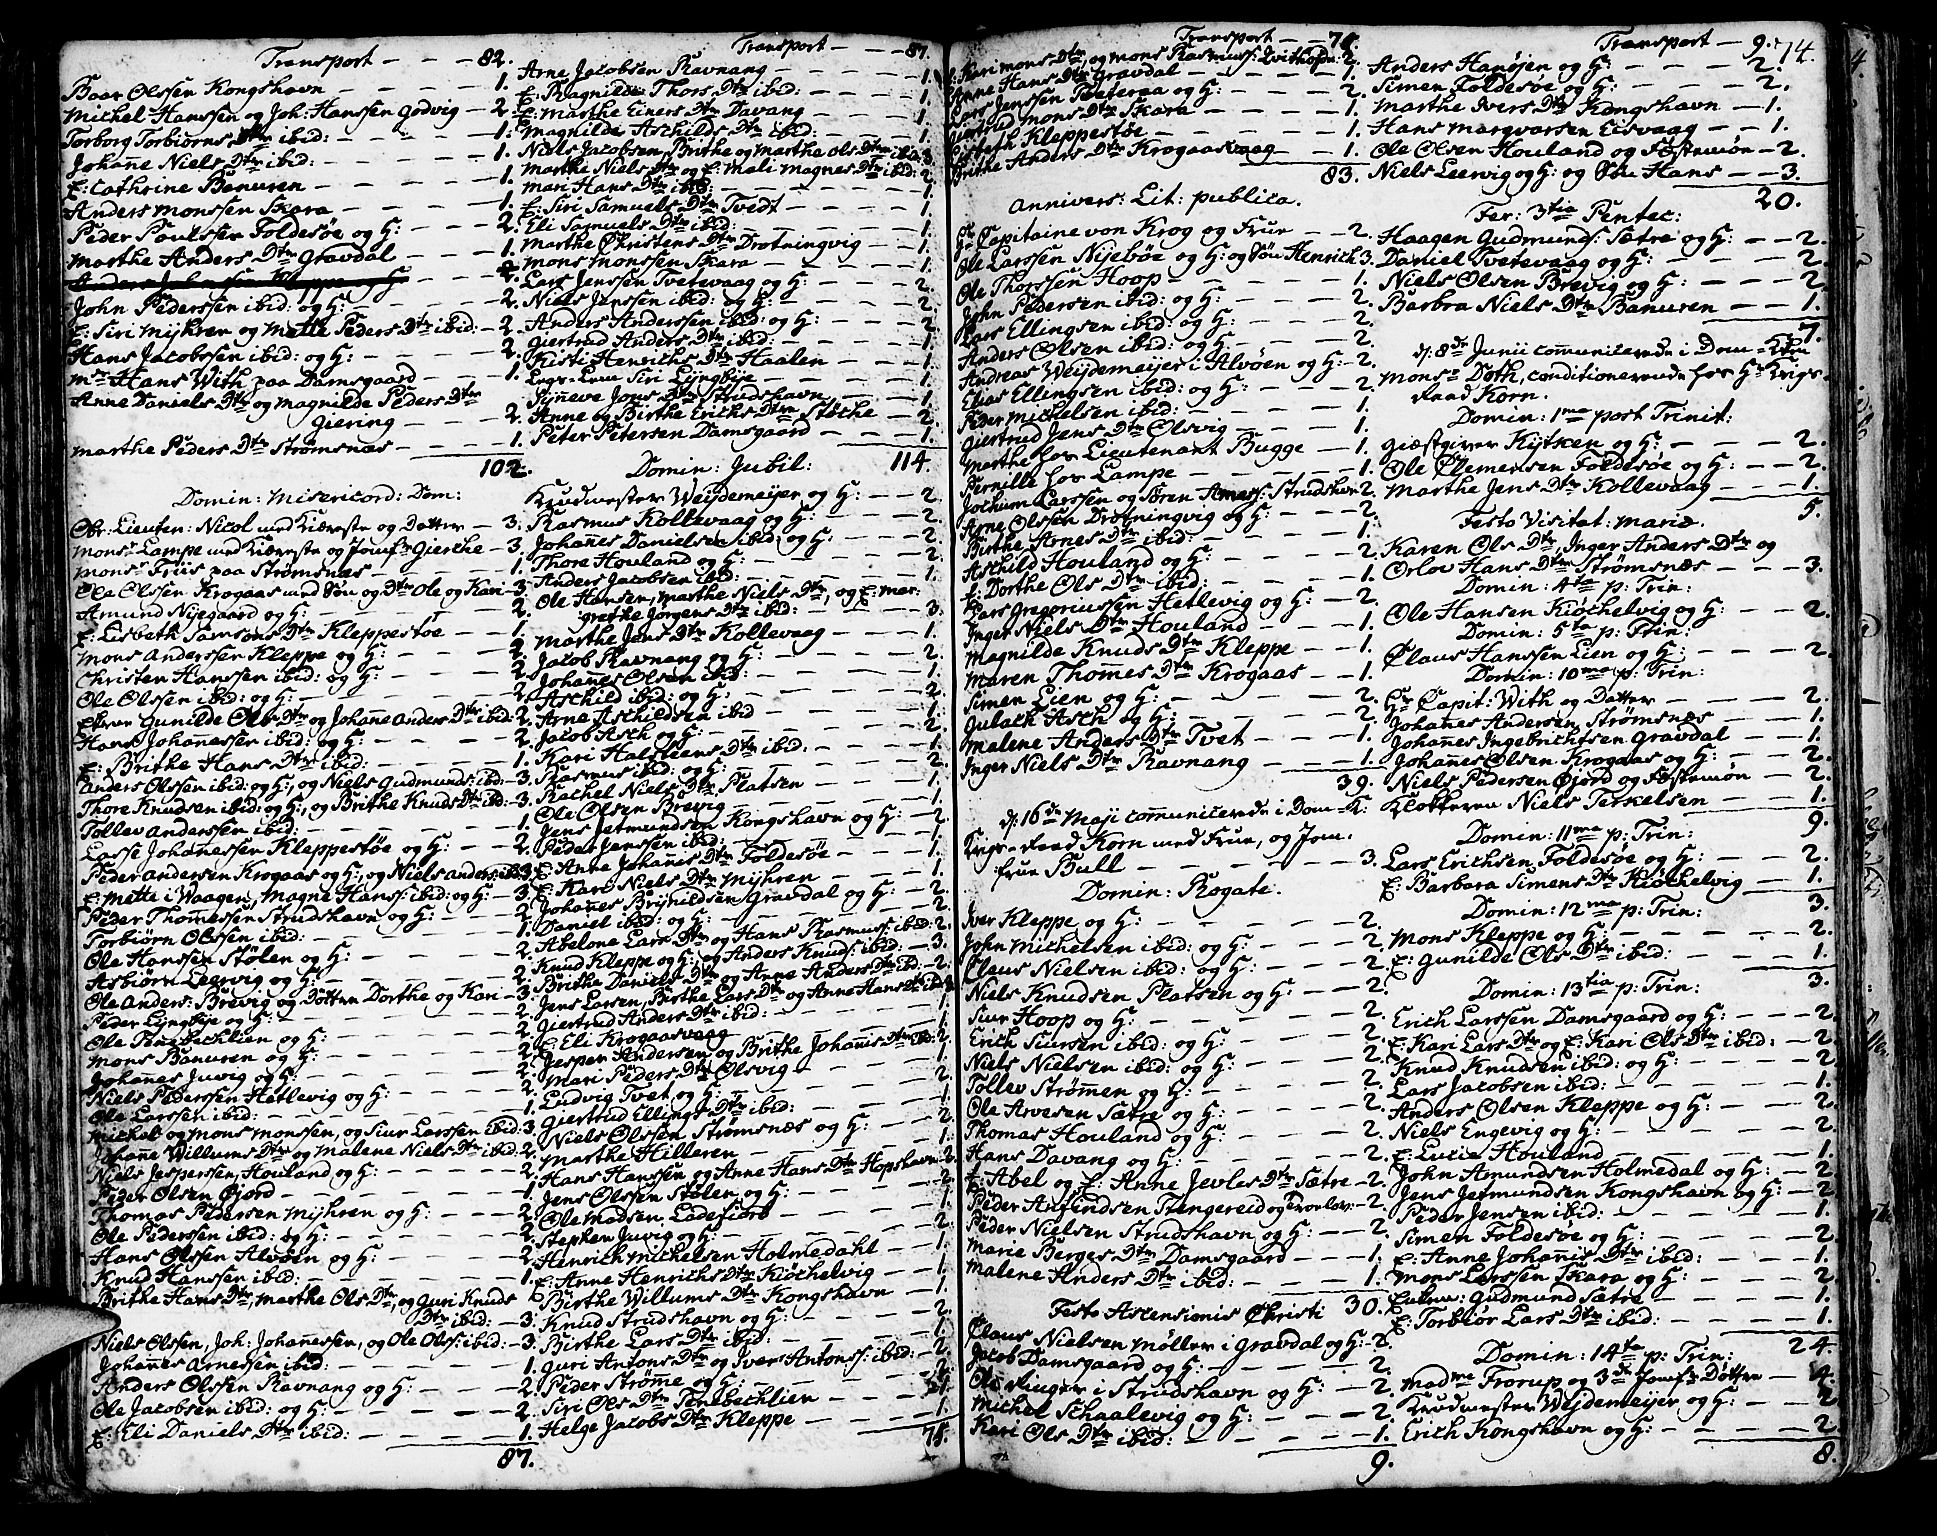 Transport - - - 82.
Baar Olssen Kongshavn - - - 1.
Michel Hanssen og Joh: Hanssen Godvig - 2.
Torborg Torbiørns Dtr ibid: - - - 1.
Johane Niels Dtr ibid: - - - 1.
E: Cathrine Banuren - - - 1.
Anders Monssen Skara - - - 1.
Peder Poulssen Foldesøe og H: - - 2.
Marthe Anders Dtr Gravdal - - - 1.
John Pederssen ibid: og H: - - - 2.
E: Siri Myhren og Mette Peders Dtr ibid: - 2.
Hans Jacobssen ibid: og H: - - - 2.
Mr Hans With paa Damsgaard - - - 1.
Anne Daniels Dtr og Magnilde Peders Dtr
Giering - - - 2.
Marthe Peders Dtr Strømsnæs - - - 1.
102.
Domin: Misericord: Dom:
Obr: Lieuten: Nicol med Kiæreste og Datter - 3.
Monsr Lampe med Kiæreste og Jomfr Gierthe - 3.
Monsr Friis paa Strømsnæs - - - 1.
Ole Olssen Krogaas med Søn og Dtr Ole og Kari - 3.
Amund Nyegaard og H: - - - 2.
E: Lisbeth Samsons Dtr Kleppestøe - - 1.
Mons Anderssen Kleppe og H: - - - 2.
Christen Hanssen ibid: og H: - - - 2.
Ole Olssen ibid: og H: - - - 2.
Gunilde Ols Dtr og Johane Anders Dtr ibid: 2.
Hans Johanessen ibid: og H: - - - 2.
E: Brithe Hans Dtr ibid: - - - 1.
Anders Olssen ibid: og H:, og Niels Gudmunds: ibid: - 3.
Thore Knudsen ibid: og H:, og Brithe Knuds Dtr ibid: - 3.
Tollev Anderssen ibid: - - - 1.
Lasse Johanessen Kleppestøe og H: - - 2.
Peder Andersen Krogaas og H:, og Niels Anders: ibid: 3.
E: Mette i Waagen, Magne Hanss: ibid: og H: - 3.
Peder Thomessen Strudshavn og H: - - 2.
Torbiørn Olssen ibid: - - - 1.
Ole Hanssen Stølen og H: - - - 2.
Asbiørn Leervig og H: - - - 2.
Ole Anders: Brevig og Døttre Dorthe og Kari - 3.
Peder Lyngbye og H: - - - 2.
Ole Tenebechlien og H: - - - 2.
Mons Banuren og H: - - - 2.
Johanes Juvig og H: - - - 2.
Niels Pederssen Hetlevig og H: - - - 2.
Ole Larssen ibid: - - - 1.
Michel og Mons Monssen, og Siur Larssen ibid: 3.
Johane Willums Dtr og Malene Niels Dtr ibid: 2.
Niels Jespersen Houland og H: - - - 2.
Peder Olsen Gjord - - - 1.
Thomas Pedersen Myhren og H: - - 2.
Ole Pedersen ibid: og H: - - - 2.
Hans Olssen Alvøen og H: - - - 2.
Knud Hanssen ibid: - - - 1.
Brithe Hans Dtr, Marthe Ols Dtr, og Guri Knuds
Dtr ibid: - - 3.
Niels Olssen, Joh: Johanessen, og Ole Olss: ibid: - 3.
Johanes Arnessen ibid: - - - 1.
Anders Olssen Ravnang og H: - - - 2.
Ole Jacobsen ibid: og H: - - - 2.
E: Eli Daniels Dtr ibid: - - - 1.
87.
Transport - - - 87.
Arne Jacobsen Ravnang - - - 1.
E: Ragnilde Thors Dtr ibid: - - - 1.
E: Marthe Einers Dtr Davang - - - 1.
Magnilde Aschilds Dtr ibid: - - - 1.
Niels Jacobsen, Brithe og Marthe Ols Dtr ibid: 3.
Marthe Niels Dtr og E: Mali Magnes Dtr ibid: 2.
Mari Hans Dtr ibid: - - - 1.
E: Siri Samuels Dtr Tvedt - - - 1.
Eli Samuels Dtr ibid: - - - 1.
Marthe Christens Dtr Drotningvig - - 1.
Mons Monssen Skara - - - 1.
Lars Jenssen Tvetevaag og H: - - - 2.
Niels Jenssen ibid: og H: - - - 2.
Anders Anderssen ibid: og H: - - - 2.
Giertrud Anders Dtr ibid: - - - 1.
Kirsti Henrichs Dtr Haalen - - - 1.
Siri Lyngbye - - - 1.
Synneve Jons Dtr Strudshavn - - - 1.
Anne og Birthe Erichs Dtr Støthe - - 2.
Peter Petersen Damsgaard - - - 1.
Domin: Jubil: 114.
Krudmester Weydemeyer og H: - - 2.
Rasmus Kollevaag og H: - - - 2.
Johanes Danielsen ibid: og H: - - - 2.
Thore Houland og H: - - - 2.
Anders Jacobsen ibid: - - - 1.
Ole Hansen, Marthe Niels Dtr, og E: Mar:
grethe Jørgens Dtr ibid: - - - 3.
Marthe Jens Dtr Kollevaag - - - 1.
Jacob Ravnang og H: - - - 2.
Johanes Olsen ibid: - - - 1.
Aschild ibid: og H: - - - 2.
Arne Aschildsen ibid - - - 1.
Jacob Asch og H: - - - 2.
Kari Haldsteens Dtr ibid: - - - 1.
Rasmus ibid: og H: - - - 2.
Rachel Niels Dtr Platsen - - - 1.
Ole Olsen Brevig - - - 1.
Jens Jetmundsen Kongshavn og H: - - 2.
Peder Jenssen ibid: - - - 1.
E: Anne Johanis Dtr Foldesøe - - - 1.
E: Kari Niels Dtr Myhren - - - 1.
Johanes Brynildsen Gravdal og H: - - 2.
Daniel ibid: og H: - - - 2.
Abelone Lars Dtr og Hans Rasmuss: ibid: - 2.
Knud Kleppe og H: og Anders Knuds: ibid: - 3.
Brithe Daniels Dtr og Anne Anders Dtr ibid: - 2.
Jens Larsen, Birthe Lars Dtr og Anne Hans Dtr ibid: 3.
Giertrud Anders Dtr ibid: - - - 1.
E: Eli Krogaasvaag - - - 1.
Jesper Andersen og Brithe Johanis Dtr ibid: 2.
Mari Peders Dtr Olsvig - - - 1.
Ludvig Tvet og H: - - - 2.
Giertrud Ellings Dtr ibid: - - - 1.
Niels Olssen Strømsnæs og H: - - - 2.
Marthe Hilleren - - - 1.
Hans Hanssen og Anne Hans Dtr Hopshavn - 2.
Jens Olssen Stølen og H: - - - 2.
Ole Madsen Ladefiord - - - 1.
Stephen Juvig og H: - - - 2.
Henrich Michelsen Holmedahl - - - 1.
E: Anne Henrichs Dtr Kiøchelvig - - - 1.
Birthe Willums Dtr Kongshavn - - - 1.
Knud Strudshavn og H: - - - 2.
Birthe Lars Dtr ibid: - - - 1.
Guri Antons Dtr og Iver Antonss: ibid: - 2.
Peder Strøme og H: - - - 2.
Siri Ols Dtr Tenebechlien - - - 1.
Helge Jacobs Dtr Kleppe - - - 1.
78.
Transport - - - 78.
Kari Mons Dtr, og Mons Rasmuss: 2.
Anne Hans Dtr Gravdal - - - 1.
Lars Jenssen Tveteraa og H: - - - 2.
Giertrud Mons Dtr Skara - - - 1.
Lisbeth Kleppestøe - - - 1.
Brithe Anders Dtr Krogaasvaag - - 1.
83.
Annivers: Lit: publica.
Hr Capitaine von Krog og Frue - - 2.
Ole Larssen Nyebøe og H: og Søn Henrich 3.
Ole Thorssen Hoop - - - 1.
John Pedersen ibid: og H: - - - 2.
Lars Ellingsen ibid: og H: - - - 2.
Anders Olsen ibid: og H: - - - 2.
Andreas Weydemeyer i Alvøen og H: - 2.
Elias Ellingsen ibid: og H: - - - 2.
Peder Michelsen ibid: - - - 1.
Giertrud Jens Dtr Olsvig - - - 1.
Marthe hos Lieutenant Bugge - - 1.
Pernille hos Lampe - - - 1.
Jochum Larssen og Søren Strudshavn 2.
Arne Olssen Drotningvig og H: - - - 2.
Birthe Arnes Dtr ibid: - - - 1.
Aschild Houland og H: - - - 2.
E: Dorthe Ols Dtr ibid: - - - 1.
Lars Gregoriussen Hetlevig og H: - - 2.
Inger Niels Dtr Houland - - - 1.
Magnilde Knuds Dtr Kleppe - - - 1.
Maren Thomes Dtr Krogaas - - - 1.
Simen Lien og H: - - - 2.
Gulach Asch og H: - - - 2.
Malene Anders Dtr Tvet - - - 1.
Inger Niels Dtr Ravnang - - - 1.
39.
d: 16de Maji communicerede i Dom-K:
Krigs-Raad Korn med Frue, og Jom:
frue Bull - - - 3.
Domin: Rogate.
Iver Kleppe og H: - - - 2.
John Michelsen ibid: og H: - - - 2.
Claus Nielsen ibid: og H: - - - 2.
Niels Knudsen Platsen og H: - - - 2.
Siur Hoop og H: - - - 2.
Erich Siursen ibid: og H: - - - 2.
Niels Nielsen ibid: og H: - - - 2.
Tollev Strømen og H: - - - 2.
Ole Arvesen Sætre og H: - - - 2.
Thomas Houland og H: - - - 2.
Hans Davang og H: - - - 2.
E: Abel og E: Anne Jevles Dtr Sætre - 2.
Peder Arnfindsen Stengereid og 2.
Peder Nielsen Strudshavn og H: - - 2.
Marie Berges Dtr Damsgaard - - - 1.
Malene Anders Dtr ibid: - - - 1.
Festo Ascensionis Christi 30.
Claus Nielsen Møller i Gravdal og H: - 2.
Jacob Damsgaard og H: - - - 2.
Ole Ringer i Strudshavn og H: - - 2.
Michel Schaalevig og H: - - - 2.
Kari Ols Dtr ibid: - - - 1.
9.
Transport - 9.
74.
Anders Hanøjen og H: - - - 2.
Simen Foldesøe og H: - - - 2.
Marthe Ivers Dtr Kongshavn - - 1.
Hans Marqvarsen Eisvaag - - 1.
Ole Olsen Houland og Festemøn - 2.
Niels Leervig og H: og Søn Hans - - 3.
20.
Fer: 3tia Pentec:
Haagen Gudmunds: Sætre og H: - - 2.
Daniel Tvetevaag og H: - - - 2.
Niels Olsen Brevig og H: - - - 2.
Barbra Niels Dtr Banuren - - - 1.
7.
d: 8de Junii communicerede i Dom-Kirken
Monsr Doth, conditionerende hos Hr Krigs-
Raad Korn.
Domin: 1ma post Trinit:
Giæstgiver Kytken og H: - - - 2.
Ole Clemensen Foldesøe og H: - - - 2.
Marthe Jens Dtr Kollevaag - - - 1.
5.
Festo Visitat: Mariæ.
Karen Ols Dtr, Inger Anders Dtr og
Orlov Hans Dtr Strømsnæs - - - 3.
Domin: 4ta p: Trin:
Ole Hansen Kiøchelvig og H: - - 2.
Domin: 5ta p: Trin:
Claus Hanssen Lien og H: - - - 2.
Domin: 10ma p: Trin:
Hr Capit: With og Datter - - - 2.
Johanes Andersen Strømsnæs - - - 1.
Johanes Ingebrichtsen Gravdal - - 1.
Johanes Olsen Krogaas og H: - - 2.
Niels Pedersen Gjord og Festemøn - 2.
Klokkeren Niels Terkelsen - - - 1.
9.
Domin: 11ma p: Trin:
Lars Erichsen Foldesøe og H: - - - 2.
E: Barbara Simens Dtr Kiøchelvig - - 1.
3.
Domin: 12ma p: Trin:
Mons Kleppe og H: - - - 2.
E: Gunilde Ols Dtr ibid: - - - 1.
3.
Domin: 13tia p: Trin:
Erich Larssen Damsgaard og H: - - 2.
E: Kari Lars Dtr og E: Kari Ols Dtr ibid: - 2.
Knud Knudsen ibid: og H: - - - 2.
Lars Jacobsen ibid: - - - 1.
Anders Olsen Kleppe og H: - - - 2.
Niels Engevig og H: - - - 2.
E: Lucie Houland - - - 1.
John Amundsen Holmedal og H: - - 2.
Jens Jetmundsen Kongshavn og H: - - 2.
Peder Jensen ibid: - - - 1.
Simen Foldesøe og H: - - - 2.
E: Anne Johanis Dtr ibid: - - - 1.
Mons Larssen Skara og H: - - - 2.
Gudmund Sætre - - - 1.
E: Torbiør Lars Dtr ibid: - - - 1.
24.
Domin: 14ta p: Trin:
Madme Frorup og 3de Jomfr Døttre - - 4.
Krudmester Weydemeyer og H: - - 2.
Erich Kongshavn og H: - - - 2.
8.